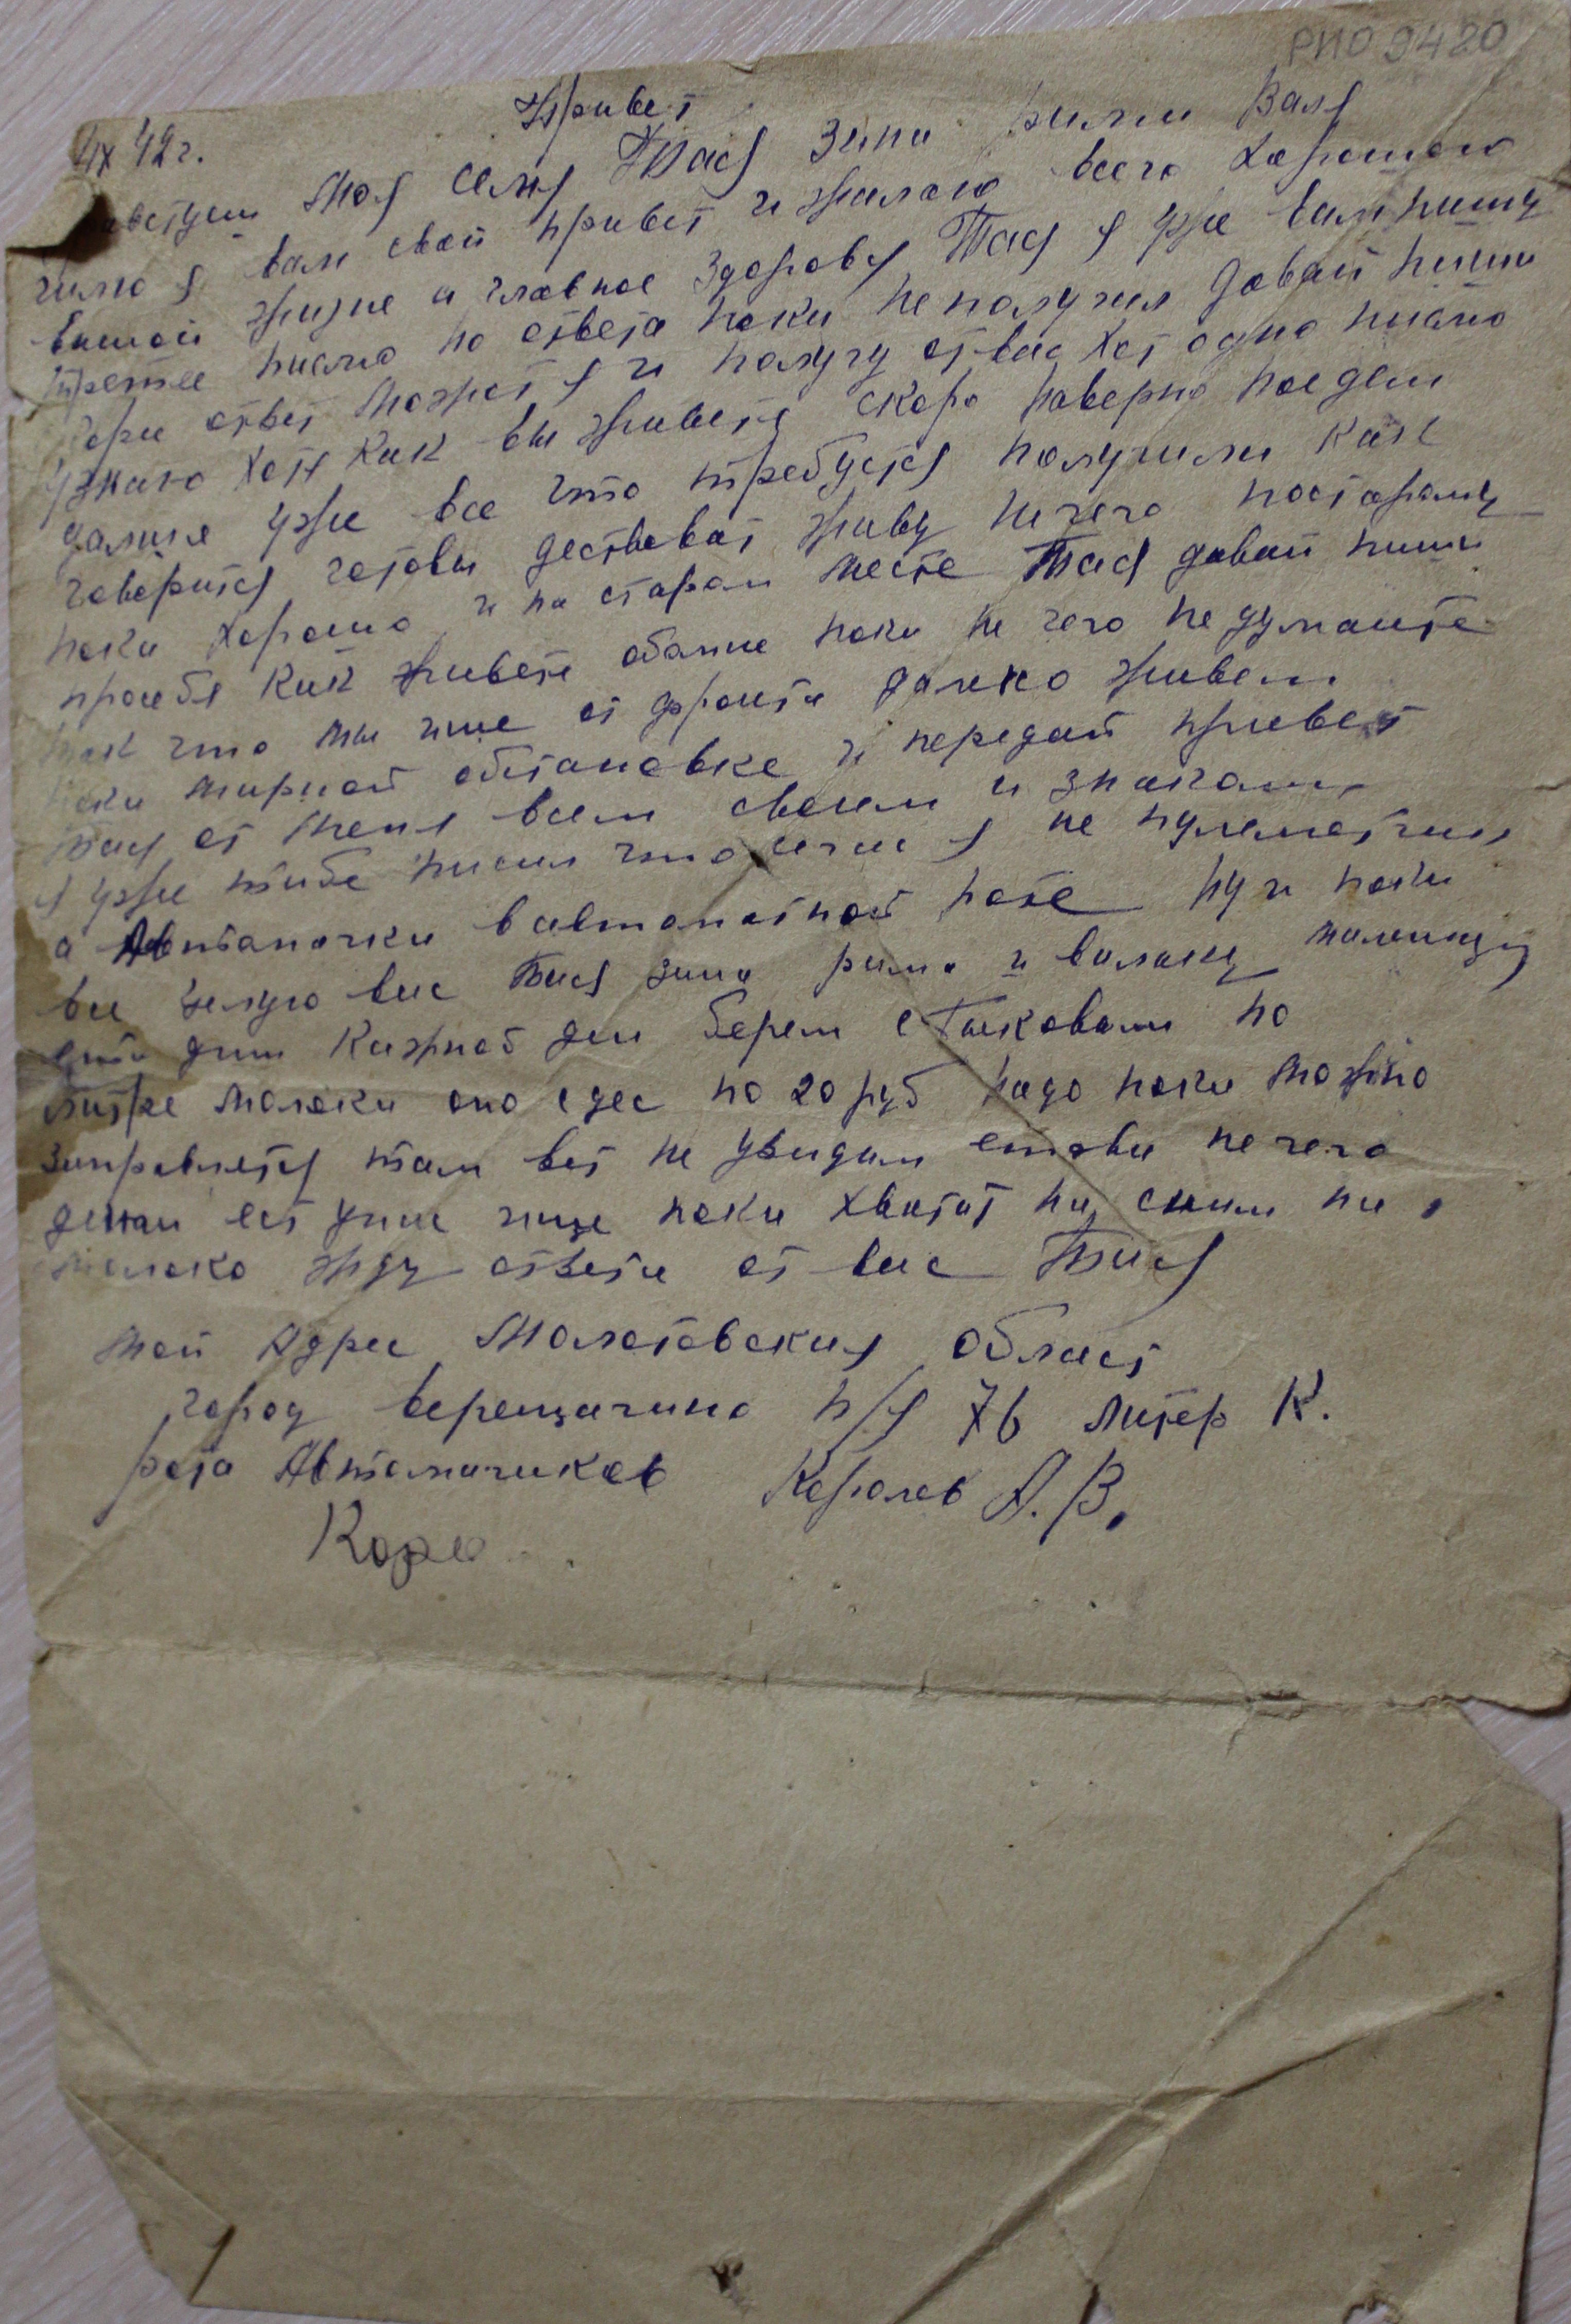 РИО 9420
Привет
IX 42 г.
моя семя Тася Зина римы Валя
я вам свой привет и желаю всего хорошого
вашой жизне а главное здоровя Тася я уже вам пишу
третее писмо но ответа пока не получил давай пиши
ответ может я и получу от вас хот одно писмо
узнаю хотя как вы живете скоро наверно поедем
далше уже все что требуется получили как
говорится готовы дествоват живу ничего постарому
пока хорошо и на старом месте Тася давай пиши
просебя как живете обомне пока не чего не думайте
так что мы еше от фронта далеко живем
пока мирной обстановке и передай привет
Тася от меня всем своем и знакомы
я уже тибе писал что сичас я не пулеметчик
а Автоматчик в автоматной роте ну и пока
все целую вас Тася зина рима и валюку малинкую
дит кажной ден берем с Тысковами по
литре молока оно сдес по 20 руб надо пока можно
заправлятся там вот не увидим етова нечего
денги ест уминя чище пока хватит на сним на
молоко жду ответа от вас Тася
мой Адрес Молотовская област
город верещагино п/я 76 литер К.
рота Автоматчиков Королев А. В.
Коро